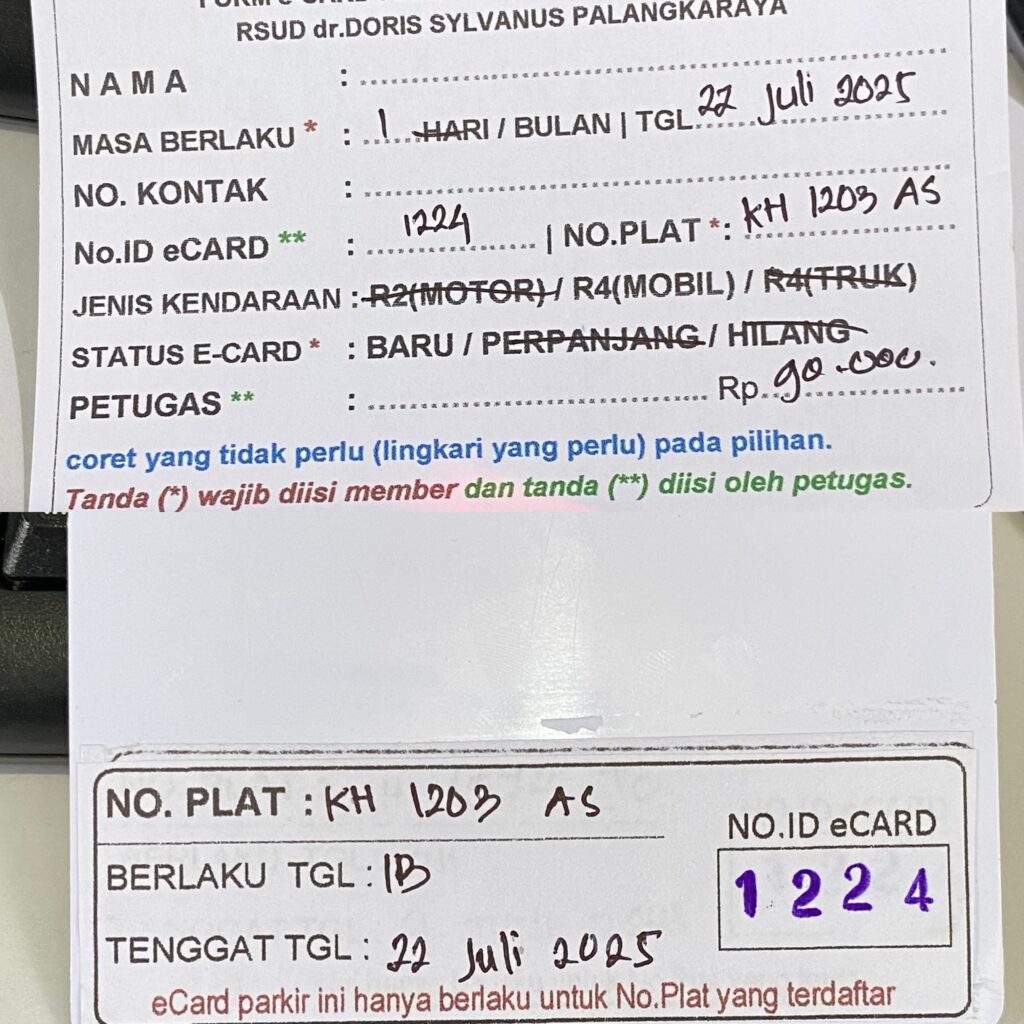 RSUD dr.DORIS SYLVANUS PALANGKARAYA
N A M A :
MASA BERLAKU * : 1 HARI / BULAN | TGL 22 Juli 2025
NO. KONTAK :
No.ID eCARD ** : 1224 | NO.PLAT *: KH 1203 AS
JENIS KENDARAAN : R2(MOTOR) / R4(MOBIL) / R4(TRUK)
STATUS E-CARD * : BARU / PERPANJANG / HILANG
PETUGAS ** : Rp. 90.000.
coret yang tidak perlu (lingkari yang perlu) pada pilihan.
Tanda (*) wajib diisi member dan tanda (**) diisi oleh petugas.
NO. PLAT : KH 1203 AS
NO.ID eCARD
1224
BERLAKU TGL : 1B
TENGGAT TGL : 22 Juli 2025
eCard parkir ini hanya berlaku untuk No.Plat yang terdaftar